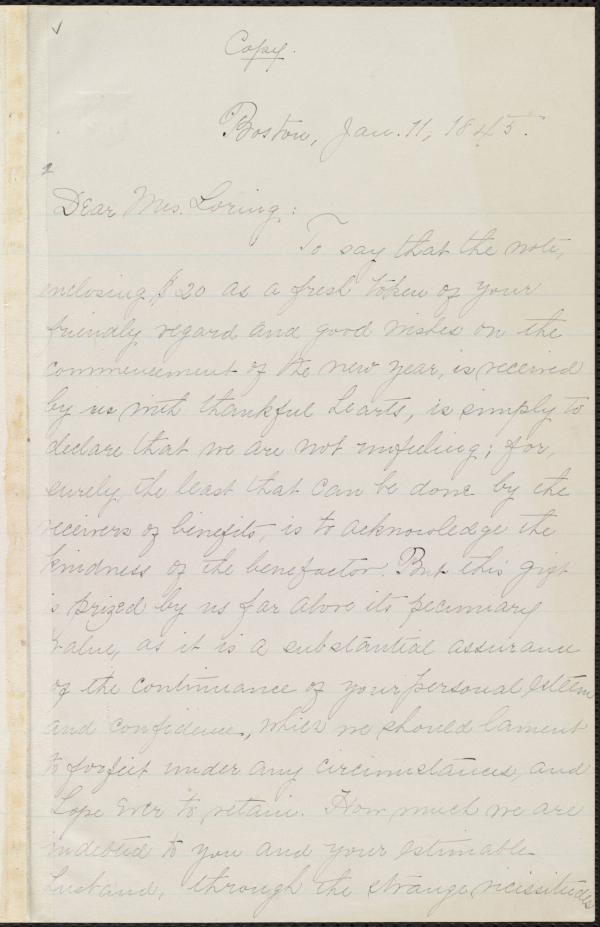 Copy.
Boston, Jan. 11, 1845.
Dear Mrs. Loring:
To say that the note,
enclosing $20 as a fresh token of your
friendly regard and good wishes on the
commencement of the new year, is received
by us with thankful hearts, is simply to
declare that we are not unfeeling; for,
surely, the least that can be done by the
receivers of benefits, is to acknowledge the
kindness of the benefactor. But this gift
is prized by us far above its pecuniary
value, as it is a substantial assurance
of the continuance of your personal esteem
and confidence, which we should lament
to forfeit under any circumstances, and
hope ever to retain. How much we are
indebted to you and your estimable
husband, through the strange vicissitudes